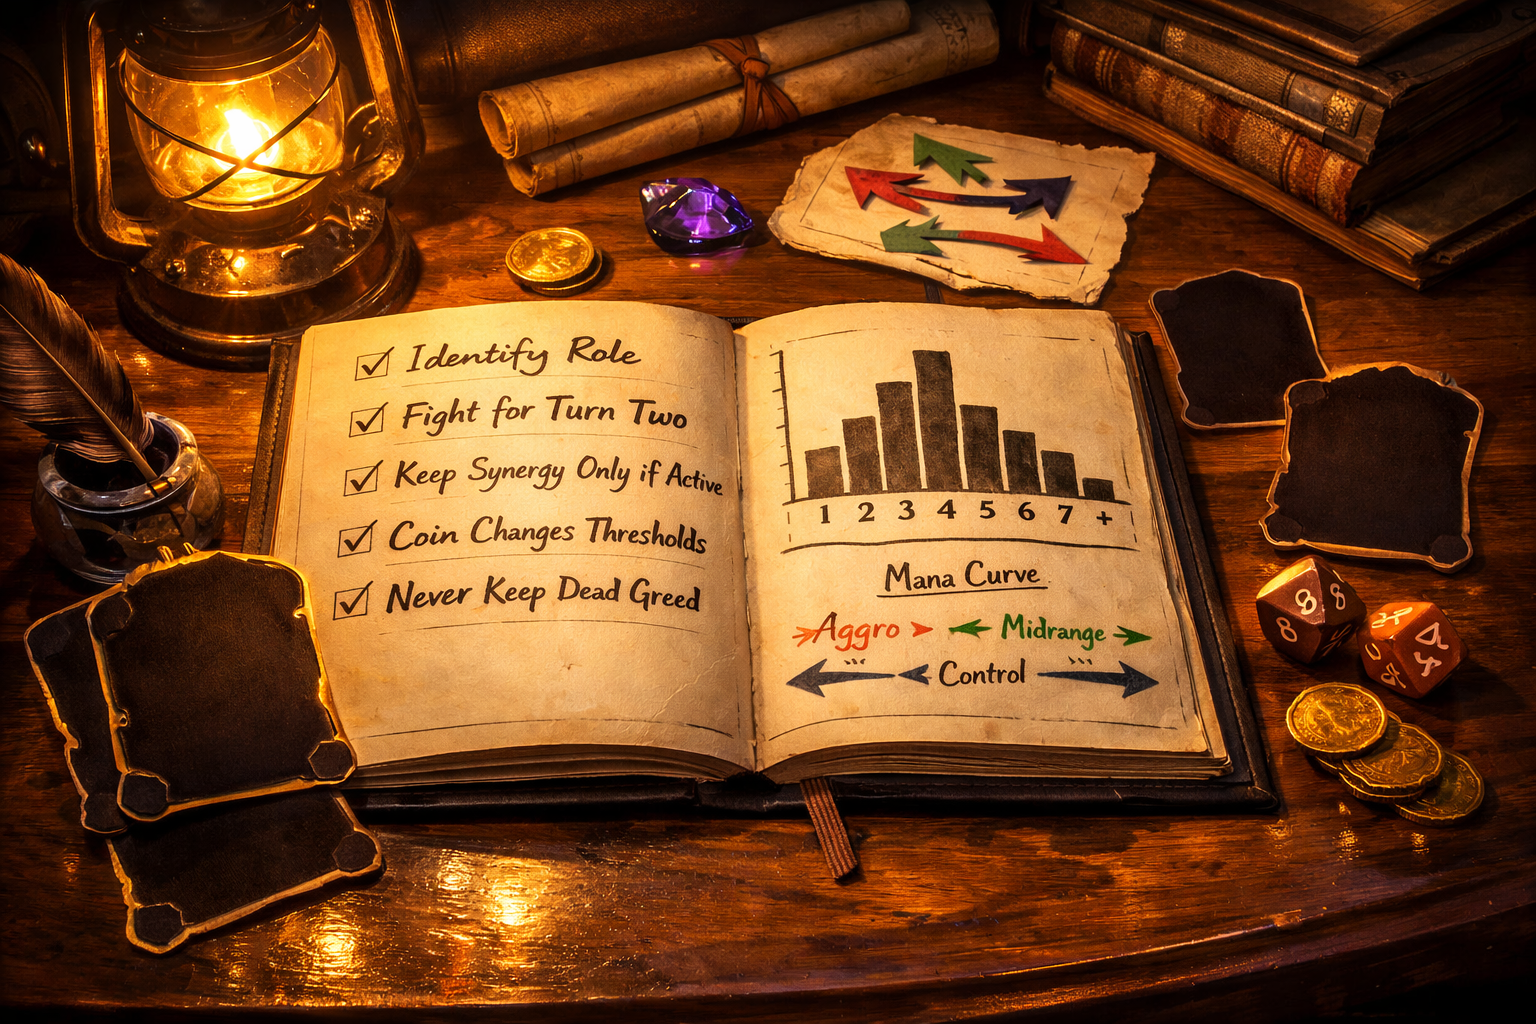 Identify Role
Fight for Turn Two
Keep Synergy Only if Active
Coin Changes Thresholds
Never Keep Dead Greed
1 2 3 4 5 6 7 +
Mana Curve
Aggro
Midrange
Control
8
8